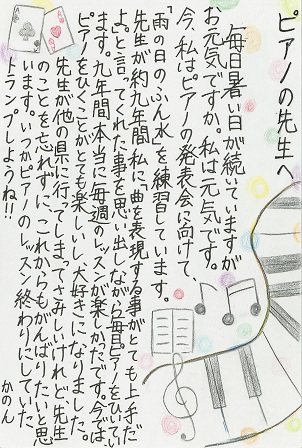 ピアノの先生へ
毎日暑い日が続いていますが
お元気ですか。私は元気です。
今、私はピアノの発表会に向けて、
「雨の日のふん水」を練習しています。
先生が約九年間、私に「曲を表現する事がとても上手だ
よ。」と言ってくれた事を思い出しながら毎日ピアノをひいてい
ます。九年間本当に毎週のレッスンが楽しかたです。今では
ピアノをひくことがとても楽しいし、大好きになりました。
先生が他の県に行ってしまってさみしいけれど、先生
のことを忘れずに、これからもがんばりたいと思
います。いつかピアノのレッスン終わりにしていた
トランプしようね!!
かのん